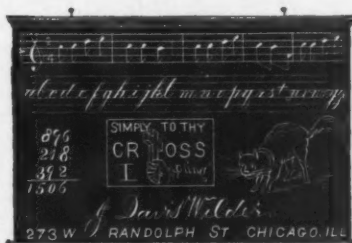 abcdefghijklmnopqrstuvwxyz
896
218
392
1506
SIMPLY TO THY
CROSS
I cling
J. Davis Wilder
273 W RANDOLPH ST CHICAGO. ILL